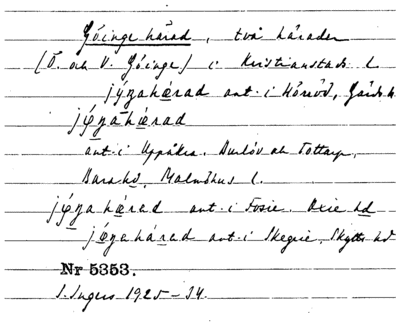 Göinge härad, två härader
(Ö. och V. Göinge) i Kristianstads l.
jýŋahærad ant. i Hörröd, Gärds h.
jǿŋahærad
ant. i Uppåkra, Burlöv och Tottarp,
Bara hd, Malmöhus l.
jǿŋahærad ant. i Fosie, Oxie hd
jǿŋahárad ant. i Skegrie, Skytts hd
Nr 5353.
I. Ingers 1925–34.